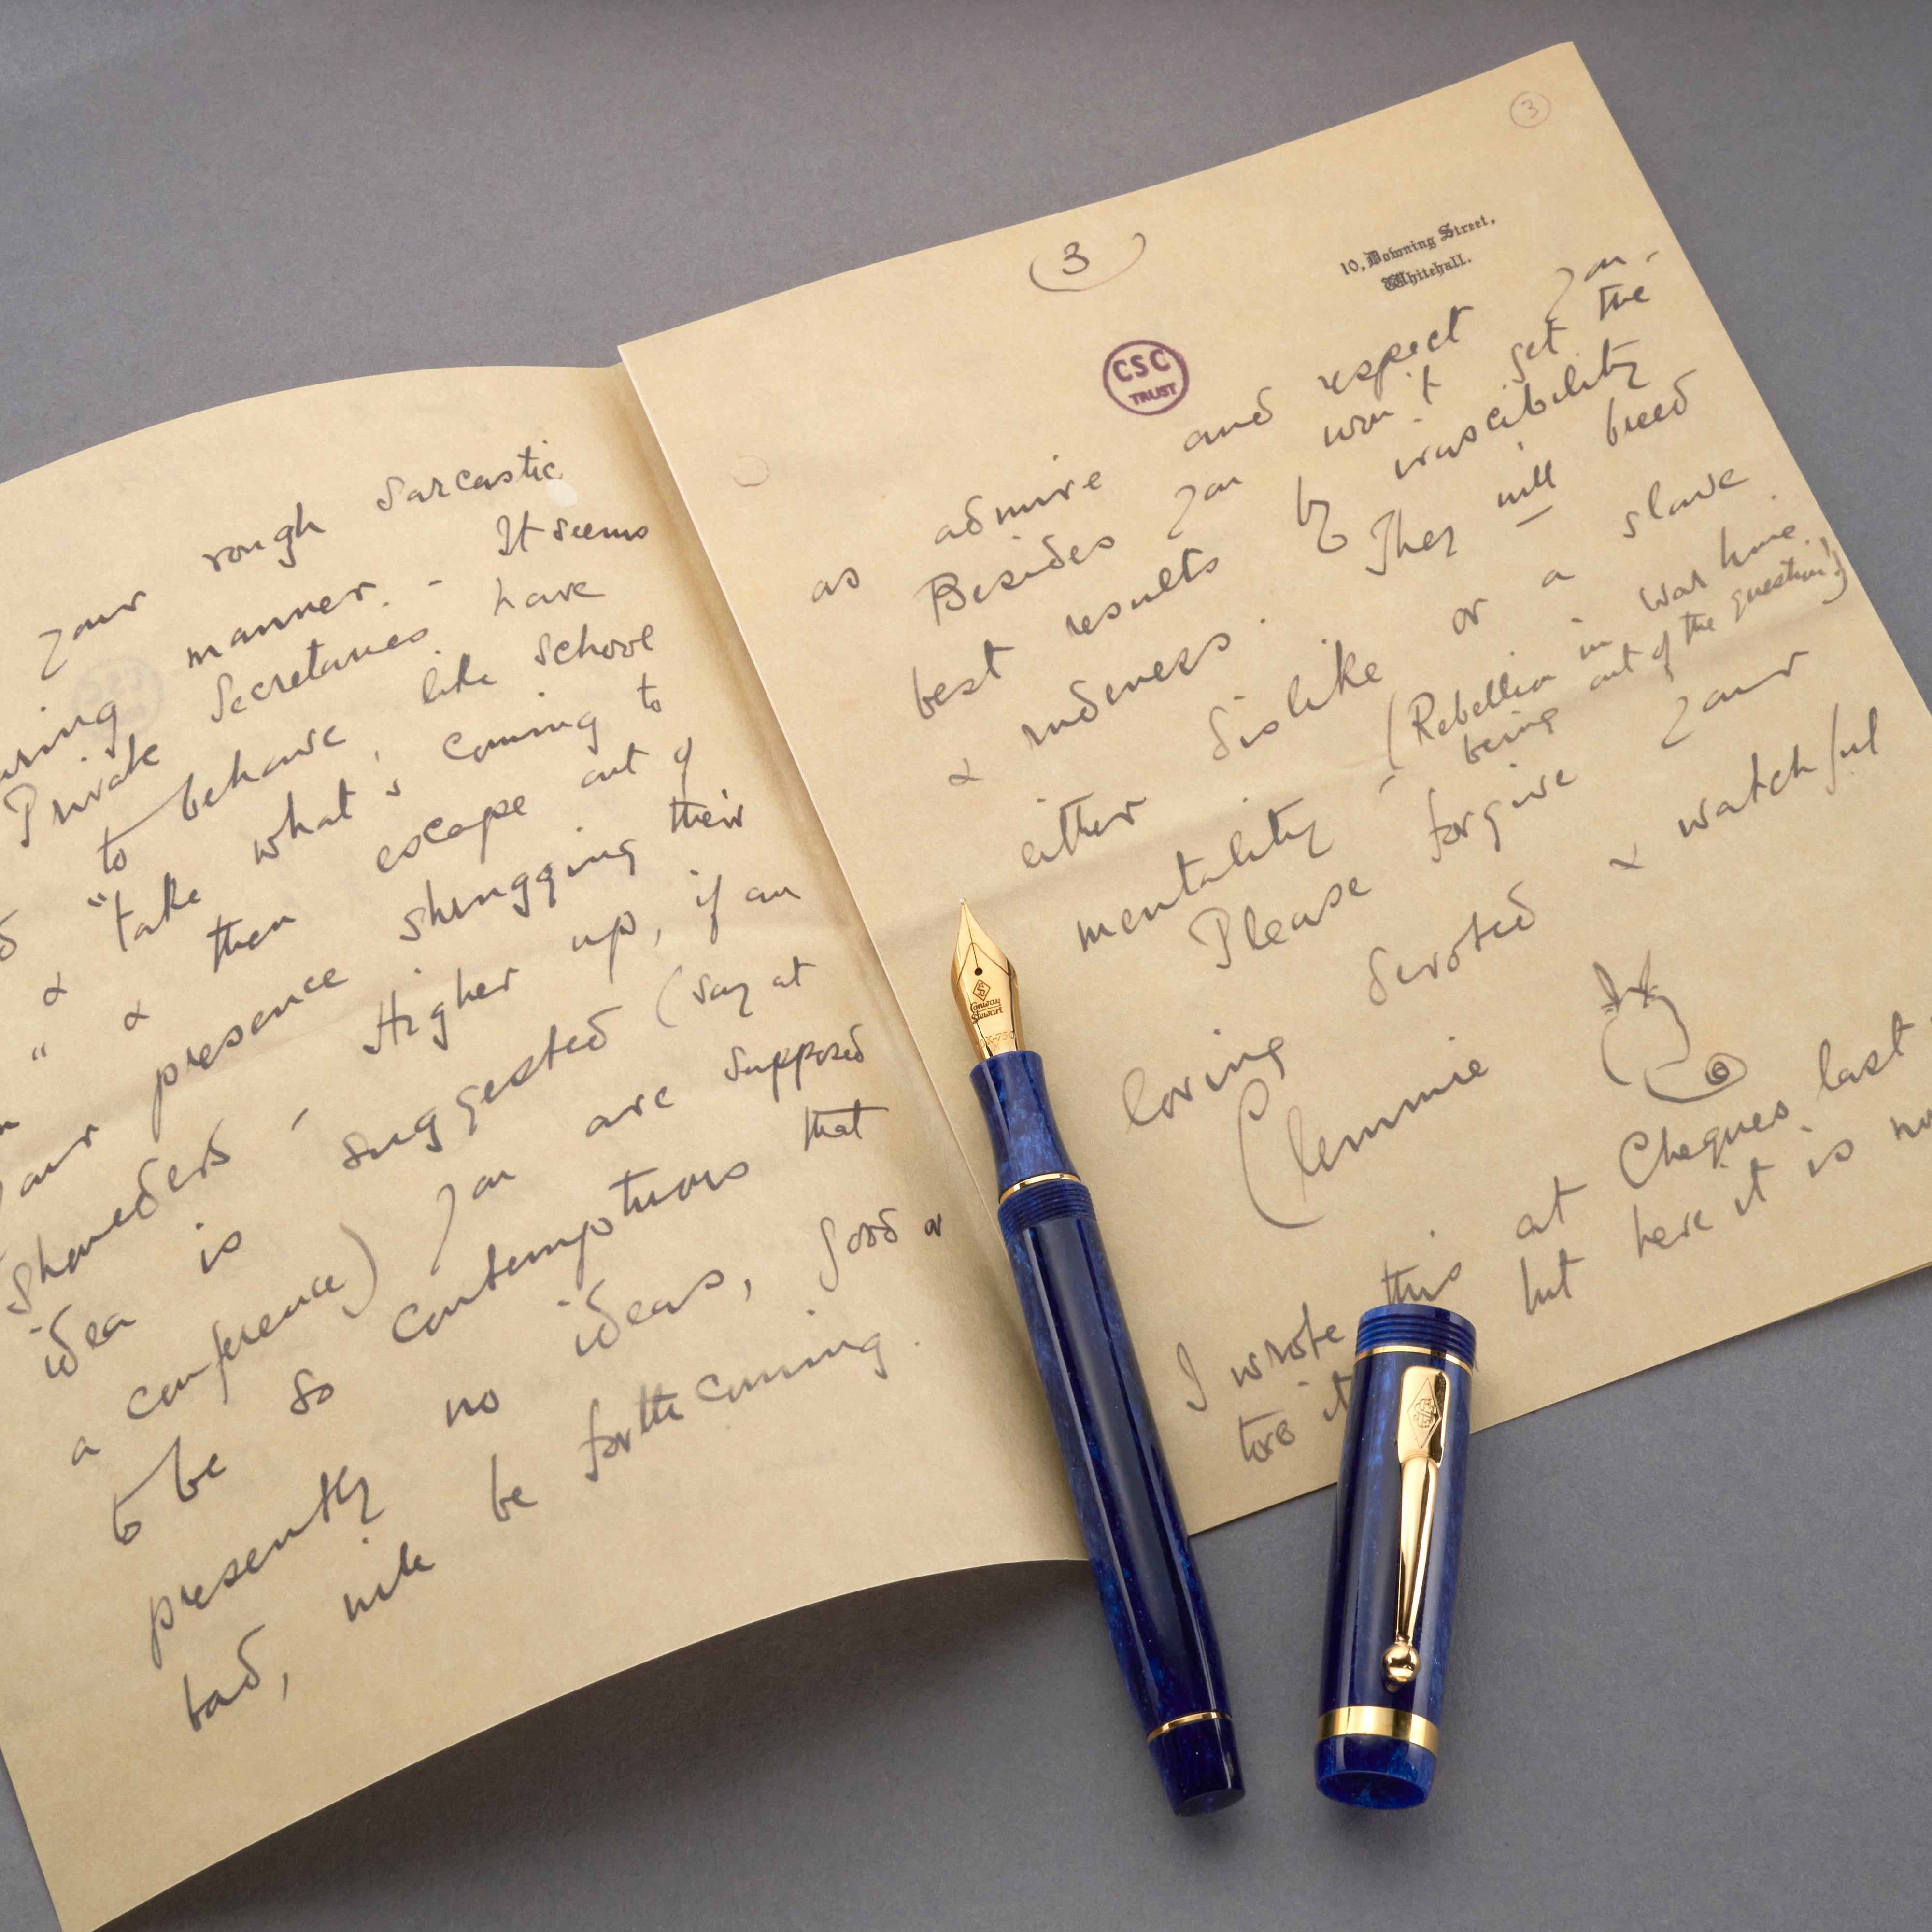 your rough sarcastic
manner. - It seems
Private Secretaries have
to behave like school
& "take what's coming to
" & then escape out of
your presence shrugging their
shoulders - Higher up, if an
idea is suggested (say at
a conference) you are supposed
to be so contemptuous that
presently no ideas, good or
bad, will be forthcoming.
3
3
10, Downing Street,
Whitehall.
CSC
TRUST
as admire and respect you -
Besides you won't get the
best results by irascibility
& rudeness. They will breed
either dislike or a slave
mentality - (Rebellion in War time
being out of the question!)
Please forgive your
loving devoted & watchful
Clemmie
I wrote this at Chequers last
tore it but here it is now
Conway
Stewart